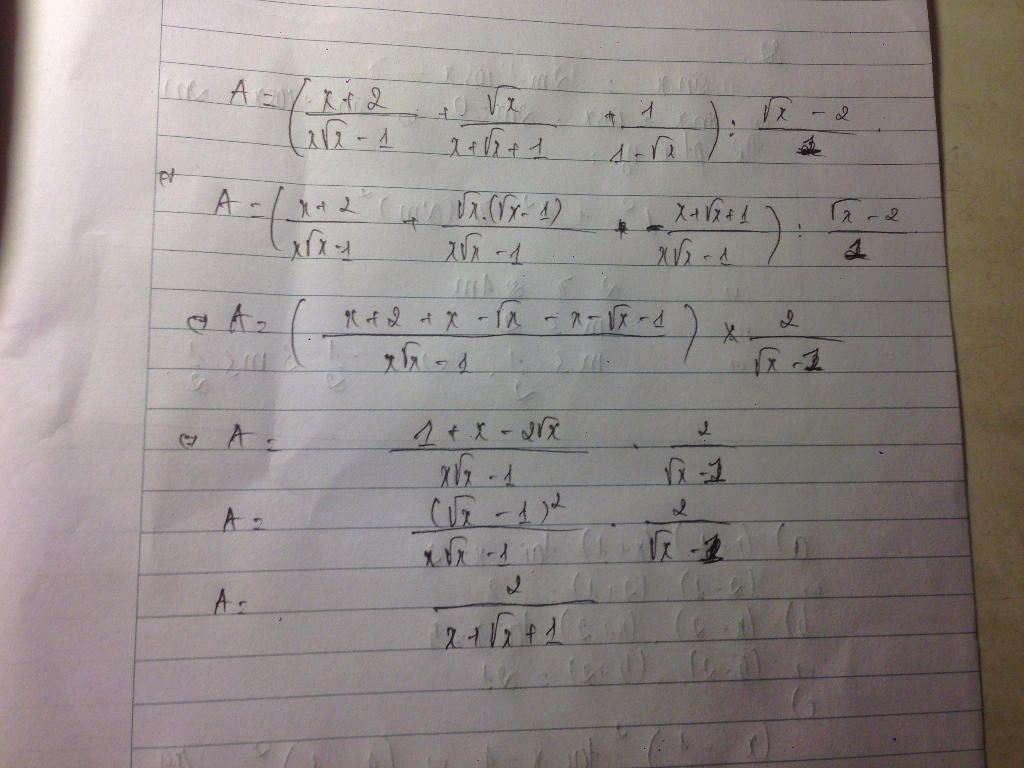 A = ( (x + 2)/(x√x - 1) + √x/(x + √x + 1) + 1/(1 - √x) ) : (√x - 2)/1
⇔ A = ( (x + 2)/(x√x - 1) + √x.(√x - 1)/(x√x - 1) - (x + √x + 1)/(x√x - 1) ) : (√x - 2)/2
⇔ A = ( (x + 2 + x - √x - x - √x - 1)/(x√x - 1) ) × 2/(√x - 1)
⇔ A = (1 + x - 2√x)/(x√x - 1) . 2/(√x - 1)
A = (√x - 1)²/(x√x - 1) . 2/(√x - 1)
A = 2/(x + √x + 1)